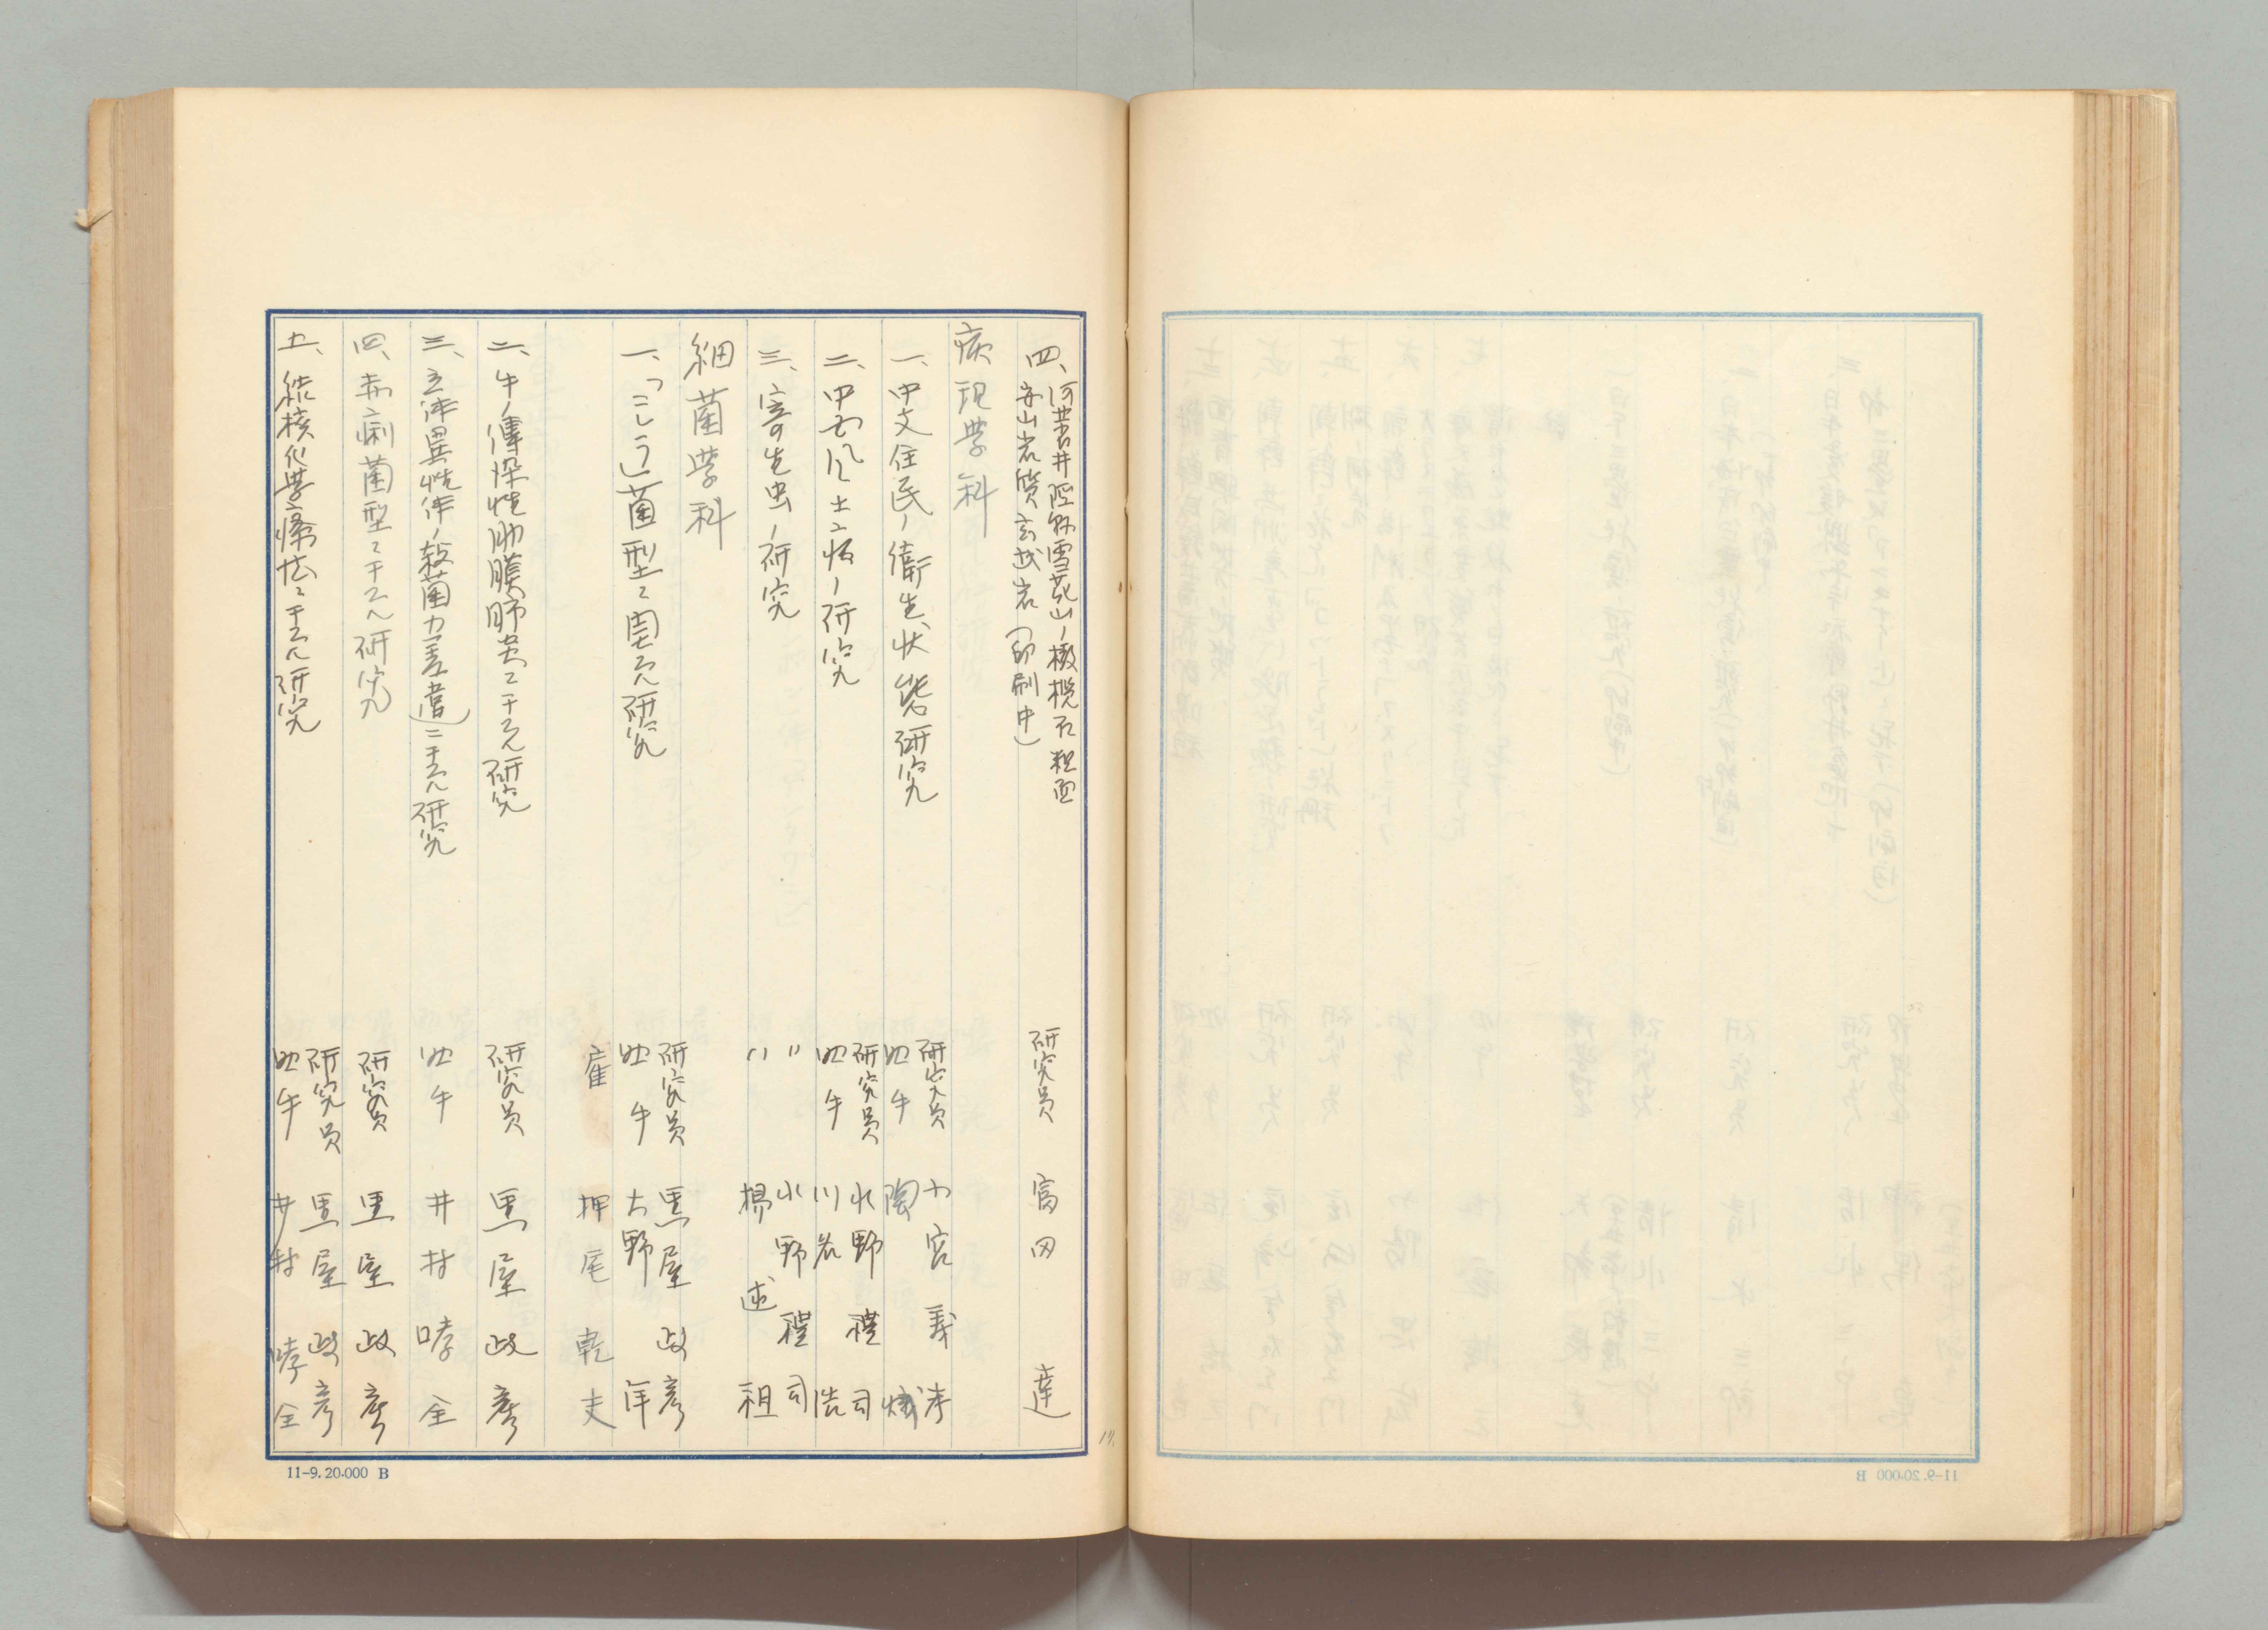 四、河北省井陘縣雪花山ノ橄欖石粗面
安山岩質玄武岩（印刷中） 研究員 富田 達
病理学科
一、中支住民ノ衛生状態研究 研究員 小宮義孝
助手 陶 熾
二、中支風土病ノ研究 研究員 水野禮司
助手 川名 浩
三、寄生虫ノ研究 〃 水野禮司
〃 楊 述祖
細菌学科
一、「こしう」菌型ニ関スル研究 研究員 黒屋政彦
助手 大野 洋
雇 押尾乾夫
二、牛ノ傳染性肋膜肺炎ニ于スル研究 研究員 黒屋政彦
三、立体異性体ノ殺菌力差違ニ于スル研究 助手 井村哮全
四、赤痢菌型ニ于スル研究 研究員 黒屋政彦
五、結核化学療法ニ于スル研究 研究員 黒屋政彦
助手 井村哮全
11-9.20.000 B